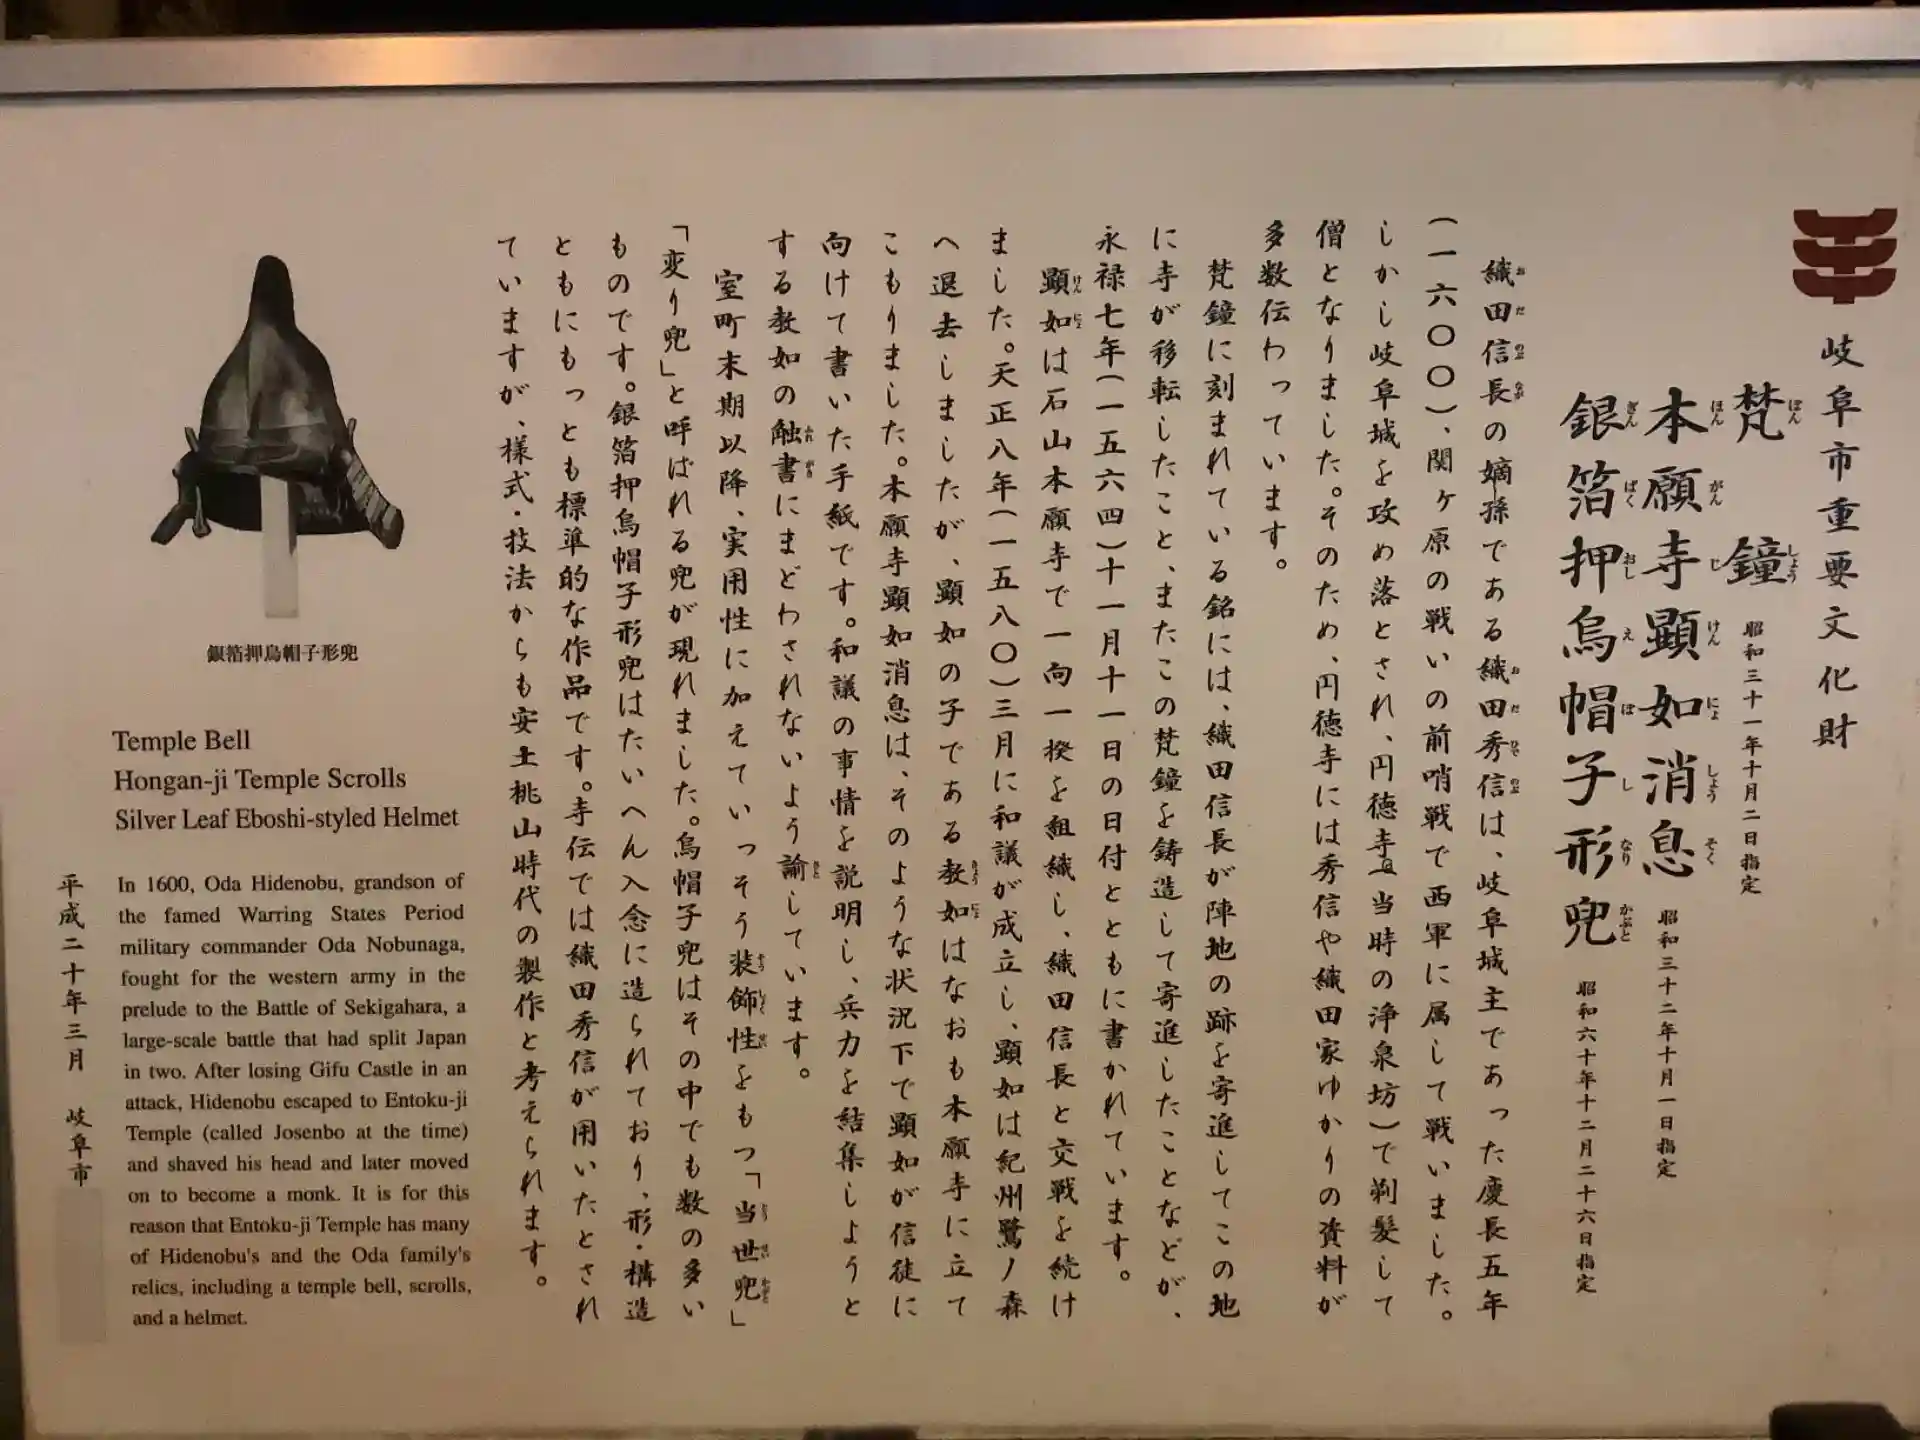 岐阜市重要文化財
梵鐘 昭和三十一年十月二日指定
本願寺顕如消息 昭和三十二年十月一日指定
銀箔押烏帽子形兜 昭和六十年十二月二十六日指定
織田信長の嫡孫である織田秀信は、岐阜城主であった慶長五年
(一六〇〇)、関ヶ原の戦いの前哨戦で西軍に属して戦いました。
しかし岐阜城を攻め落とされ、円徳寺(当時の浄泉坊)で剃髪して
僧となりました。そのため、円徳寺には秀信や織田家ゆかりの資料が
多数伝わっています。
梵鐘に刻まれている銘には、織田信長が陣地の跡を寄進してこの地
に寺が移転したこと、またこの梵鐘を鋳造して寄進したことなどが、
永禄七年(一五六四)十一月十一日の日付とともに書かれています。
顕如は石山本願寺で一向一揆を組織し、織田信長と交戦を続け
ました。天正八年(一五八〇)三月に和議が成立し、顕如は紀州鷺ノ森
へ退去しましたが、顕如の子である教如はなおも本願寺に立て
こもりました。本願寺顕如消息は、そのような状況下で顕如が信徒に
向けて書いた手紙です。和議の事情を説明し、兵力を結集しようと
する教如の触書にまどわされないよう諭しています。
室町末期以降、実用性に加えていっそう装飾性をもつ「当世兜」
「変り兜」と呼ばれる兜が現れました。烏帽子兜はその中でも数の多い
ものです。銀箔押烏帽子形兜はたいへん入念に造られており、形・構造
ともにもっとも標準的な作品です。寺伝では織田秀信が用いたとされ
ていますが、様式・技法からも安土桃山時代の製作と考えられます。
銀箔押烏帽子形兜
Temple Bell
Hongan-ji Temple Scrolls
Silver Leaf Eboshi-styled Helmet
In 1600, Oda Hidenobu, grandson of
the famed Warring States Period
military commander Oda Nobunaga,
fought for the western army in the
prelude to the Battle of Sekigahara, a
large-scale battle that had split Japan
in two. After losing Gifu Castle in an
attack, Hidenobu escaped to Entoku-ji
Temple (called Josenbo at the time)
and shaved his head and later moved
on to become a monk. It is for this
reason that Entoku-ji Temple has many
of Hidenobu's and the Oda family's
relics, including a temple bell, scrolls,
and a helmet.
平成二十年三月 岐阜市